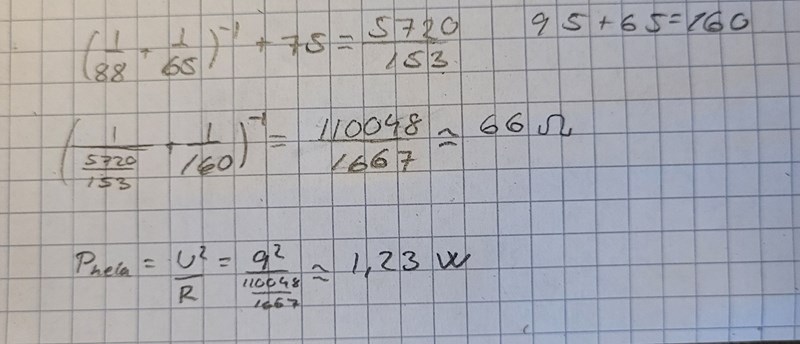 (1/88 + 1/65)^-1 + 75 = 5720/153    95 + 65 = 160
(1/(5720/153) + 1/160)^-1 = 110048/1667 ≃ 66 Ω
P = U²/R = 9²/(110048/1667) ≈ 1,23 W